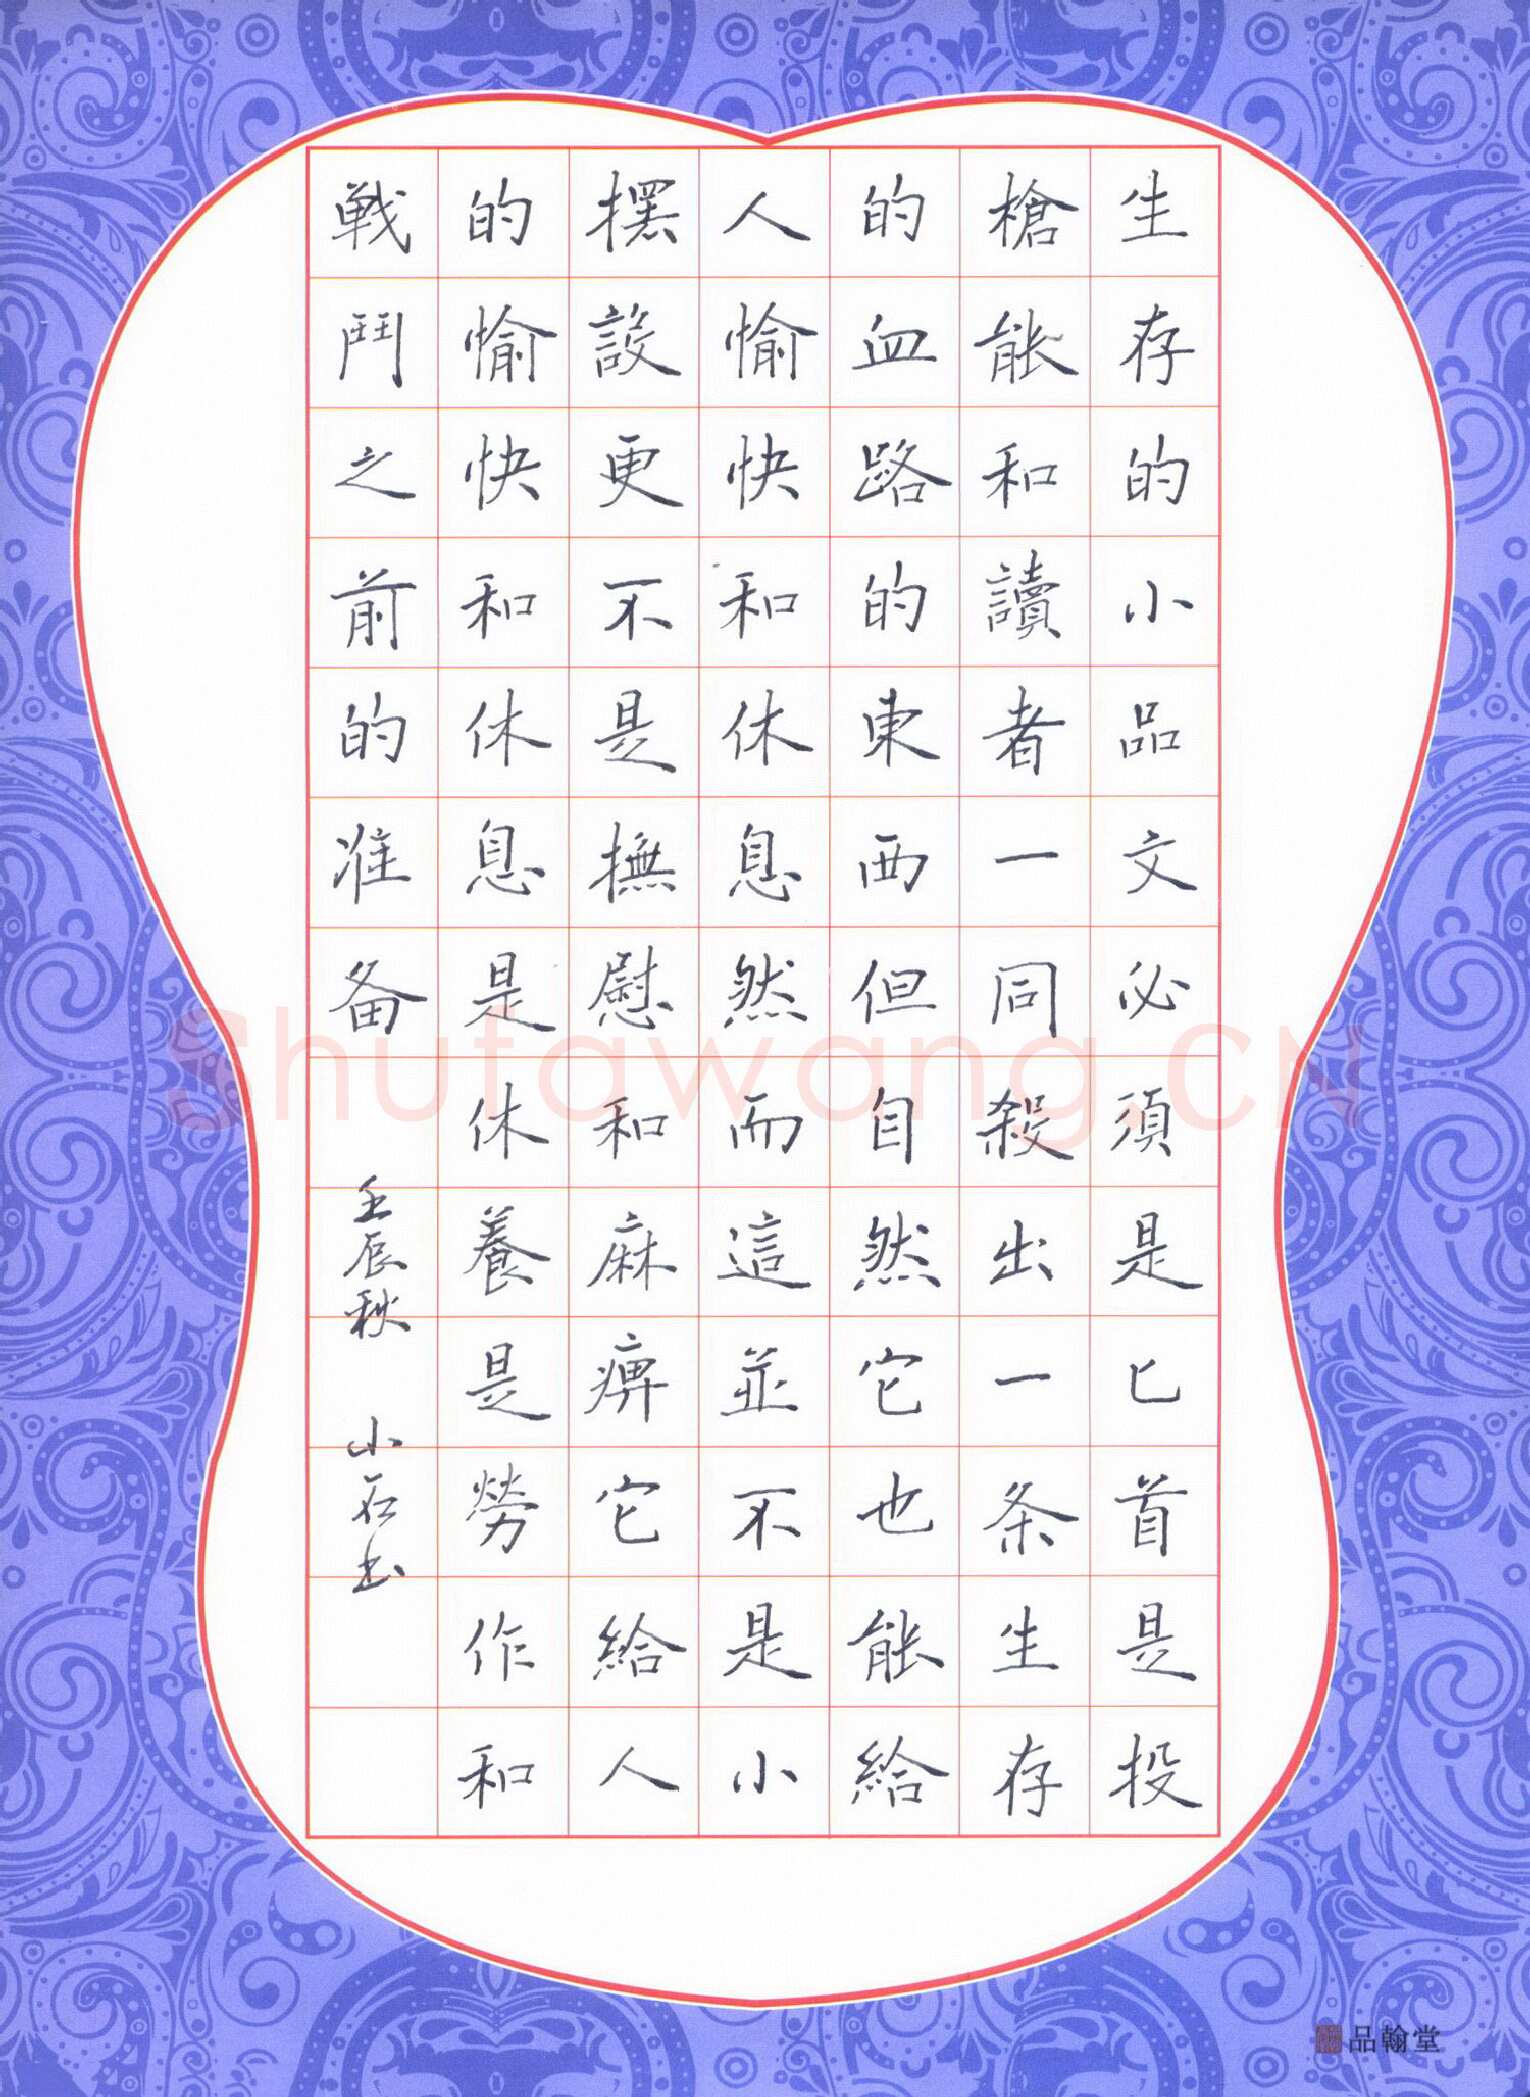 生存的小品文必須是匕首是投
槍能和讀者一同殺出一条生存
的血路的東西但自然它也能給
人愉快和休息然而這並不是小
擺設更不是撫慰和麻痹它給人
的愉快和休息是休養是勞作和
戰鬥之前的准备
壬辰秋 小石书
Shufawang.CN
品翰堂